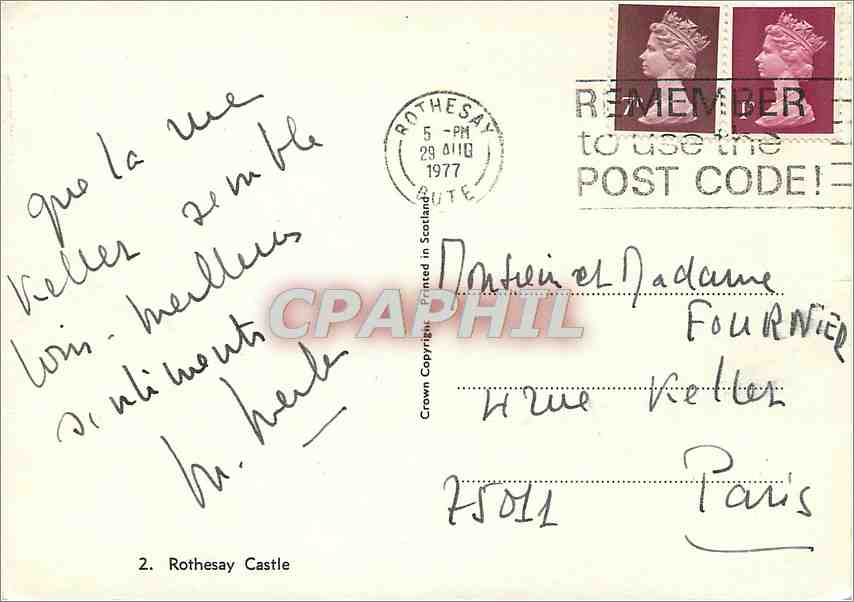 que la rue
Keller semble
loin. meilleurs
sentiments
M.
2. Rothesay Castle
Crown Copyright Printed in Scotland
ROTHESAY
5 -PM
29 AUG
1977
BUTE
REMEMBER
to use the
POST CODE!
7P
Monsieur et Madame
FOURNIER
4 rue Keller
75011 Paris
CPAPHIL